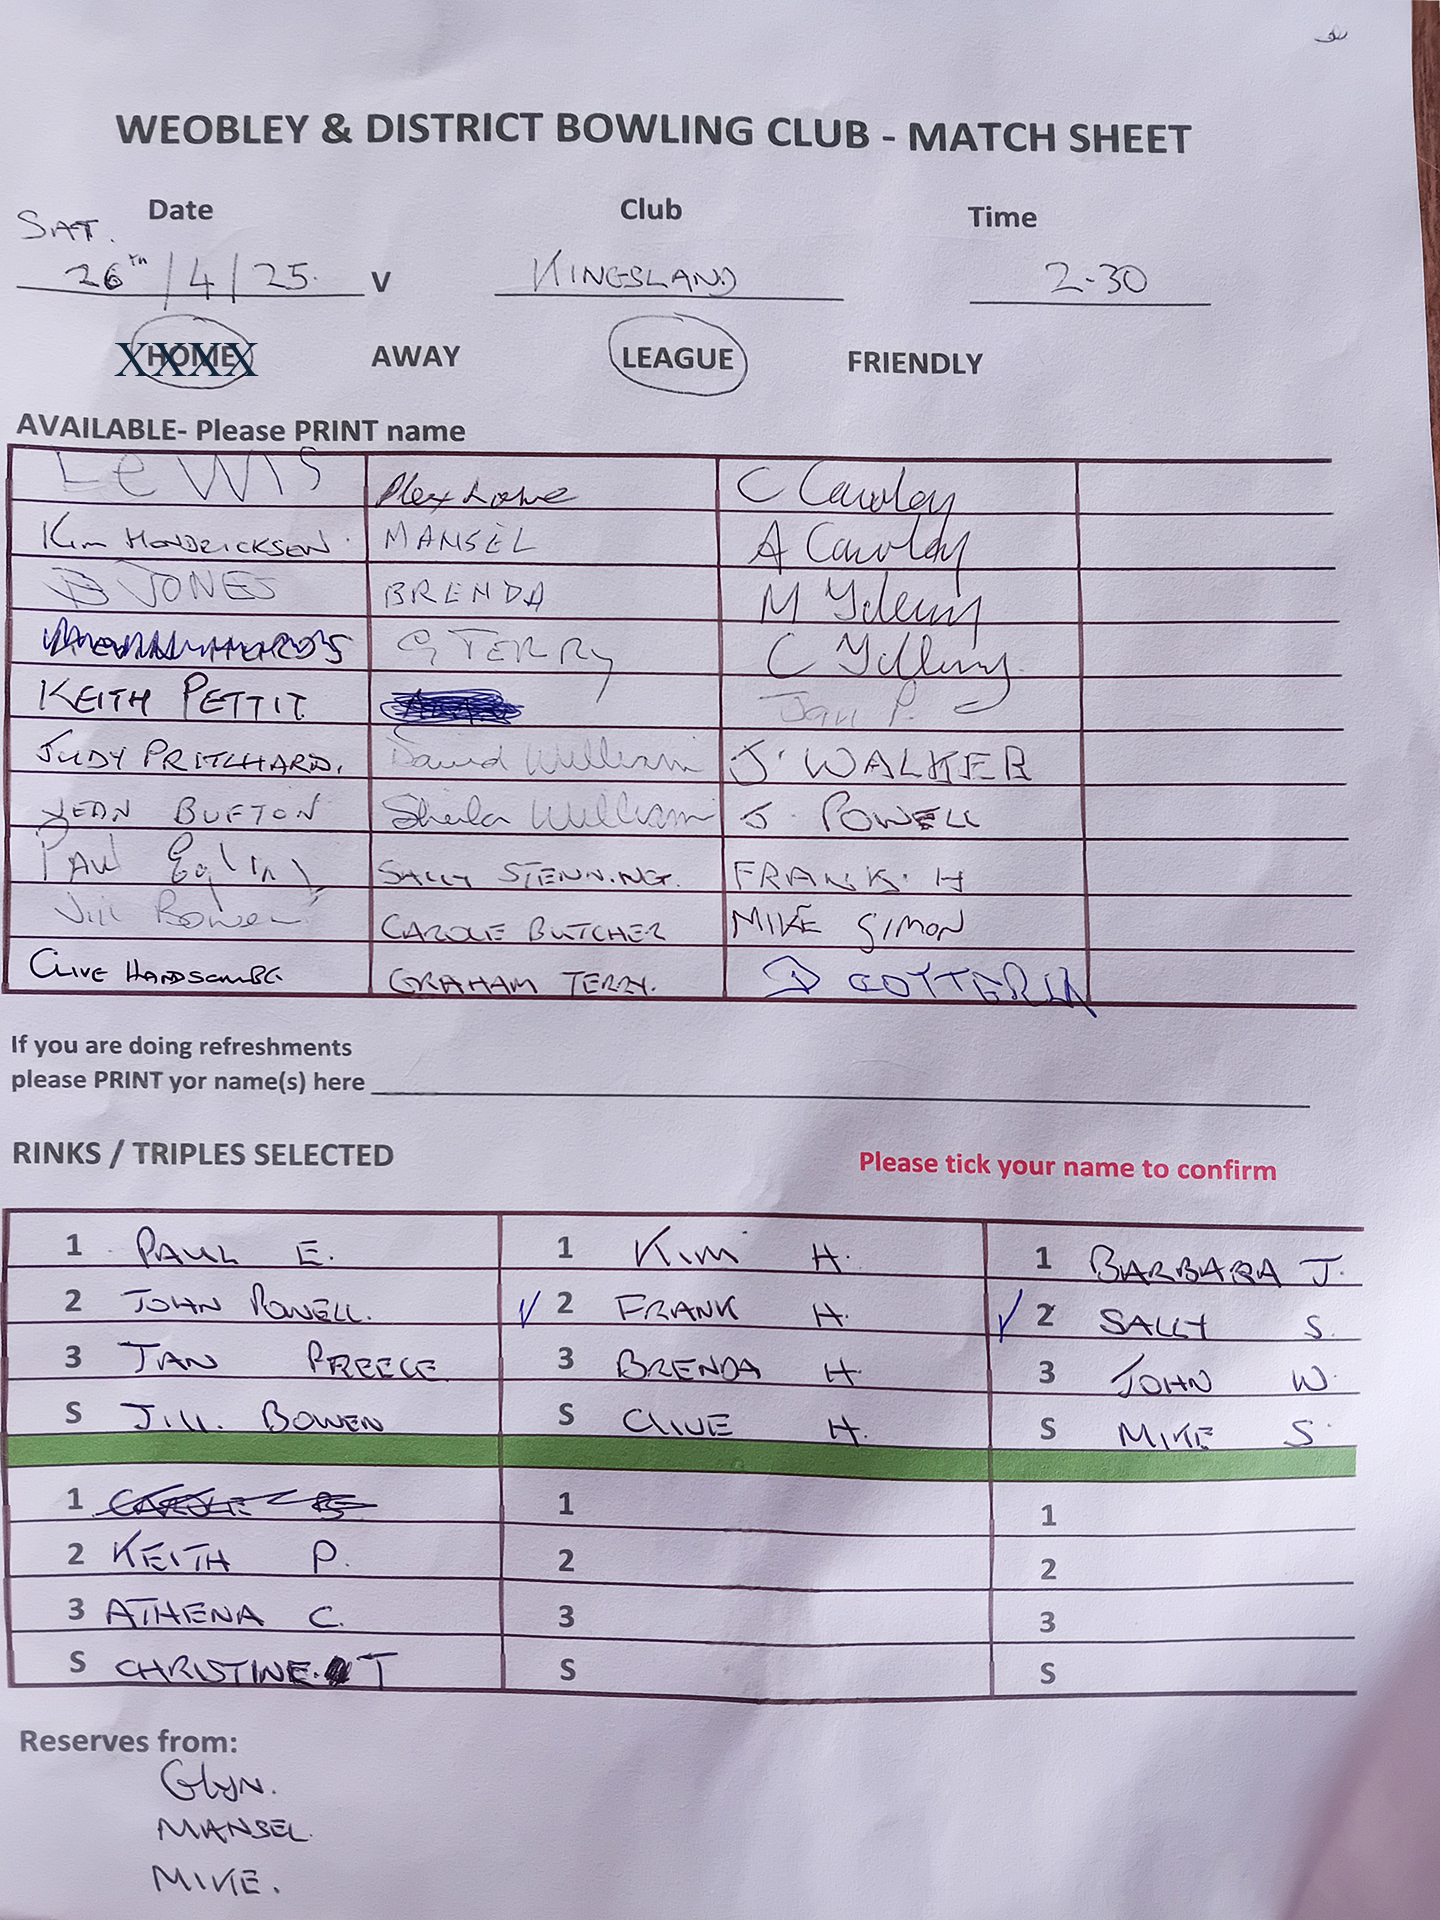 WEOBLEY & DISTRICT BOWLING CLUB - MATCH SHEET
Date Club Time
SAT.
26th/4/25. V KINGSLAND 2-30
XXXX HOME AWAY LEAGUE FRIENDLY
AVAILABLE- Please PRINT name
LeWIS Alex Lowe C Cawley
Kim HENDRICKSEN. MANSEL A Cawley
B JONES BRENDA M
G TERRY C
KEITH PETTIT Jan P.
JUDY PRITCHARD. David William J. WALKER
JEAN BUFTON Sheila William J. POWELL
Paul SALLY STENNING. FRANK. H
Jill Bowen CAROLE BUTCHER MIKE SIMON
CLIVE HANDSCOMBE GRAHAM TERRY. D COTTERILL
If you are doing refreshments
please PRINT yor name(s) here
RINKS / TRIPLES SELECTED Please tick your name to confirm
1 PAUL E. 1 KIM H. 1 BARBARA J.
2 JOHN POWELL. ✓ 2 FRANK H. ✓ 2 SALLY S.
3 JAN PREECE 3 BRENDA H. 3 JOHN W.
S JILL. BOWEN S CLIVE H. S MIKE S.
1 CAROLE B 1 1
2 KEITH P. 2 2
3 ATHENA C. 3 3
S CHRISTINE. T S S
Reserves from:
GLYN.
MANSEL.
MIKE.